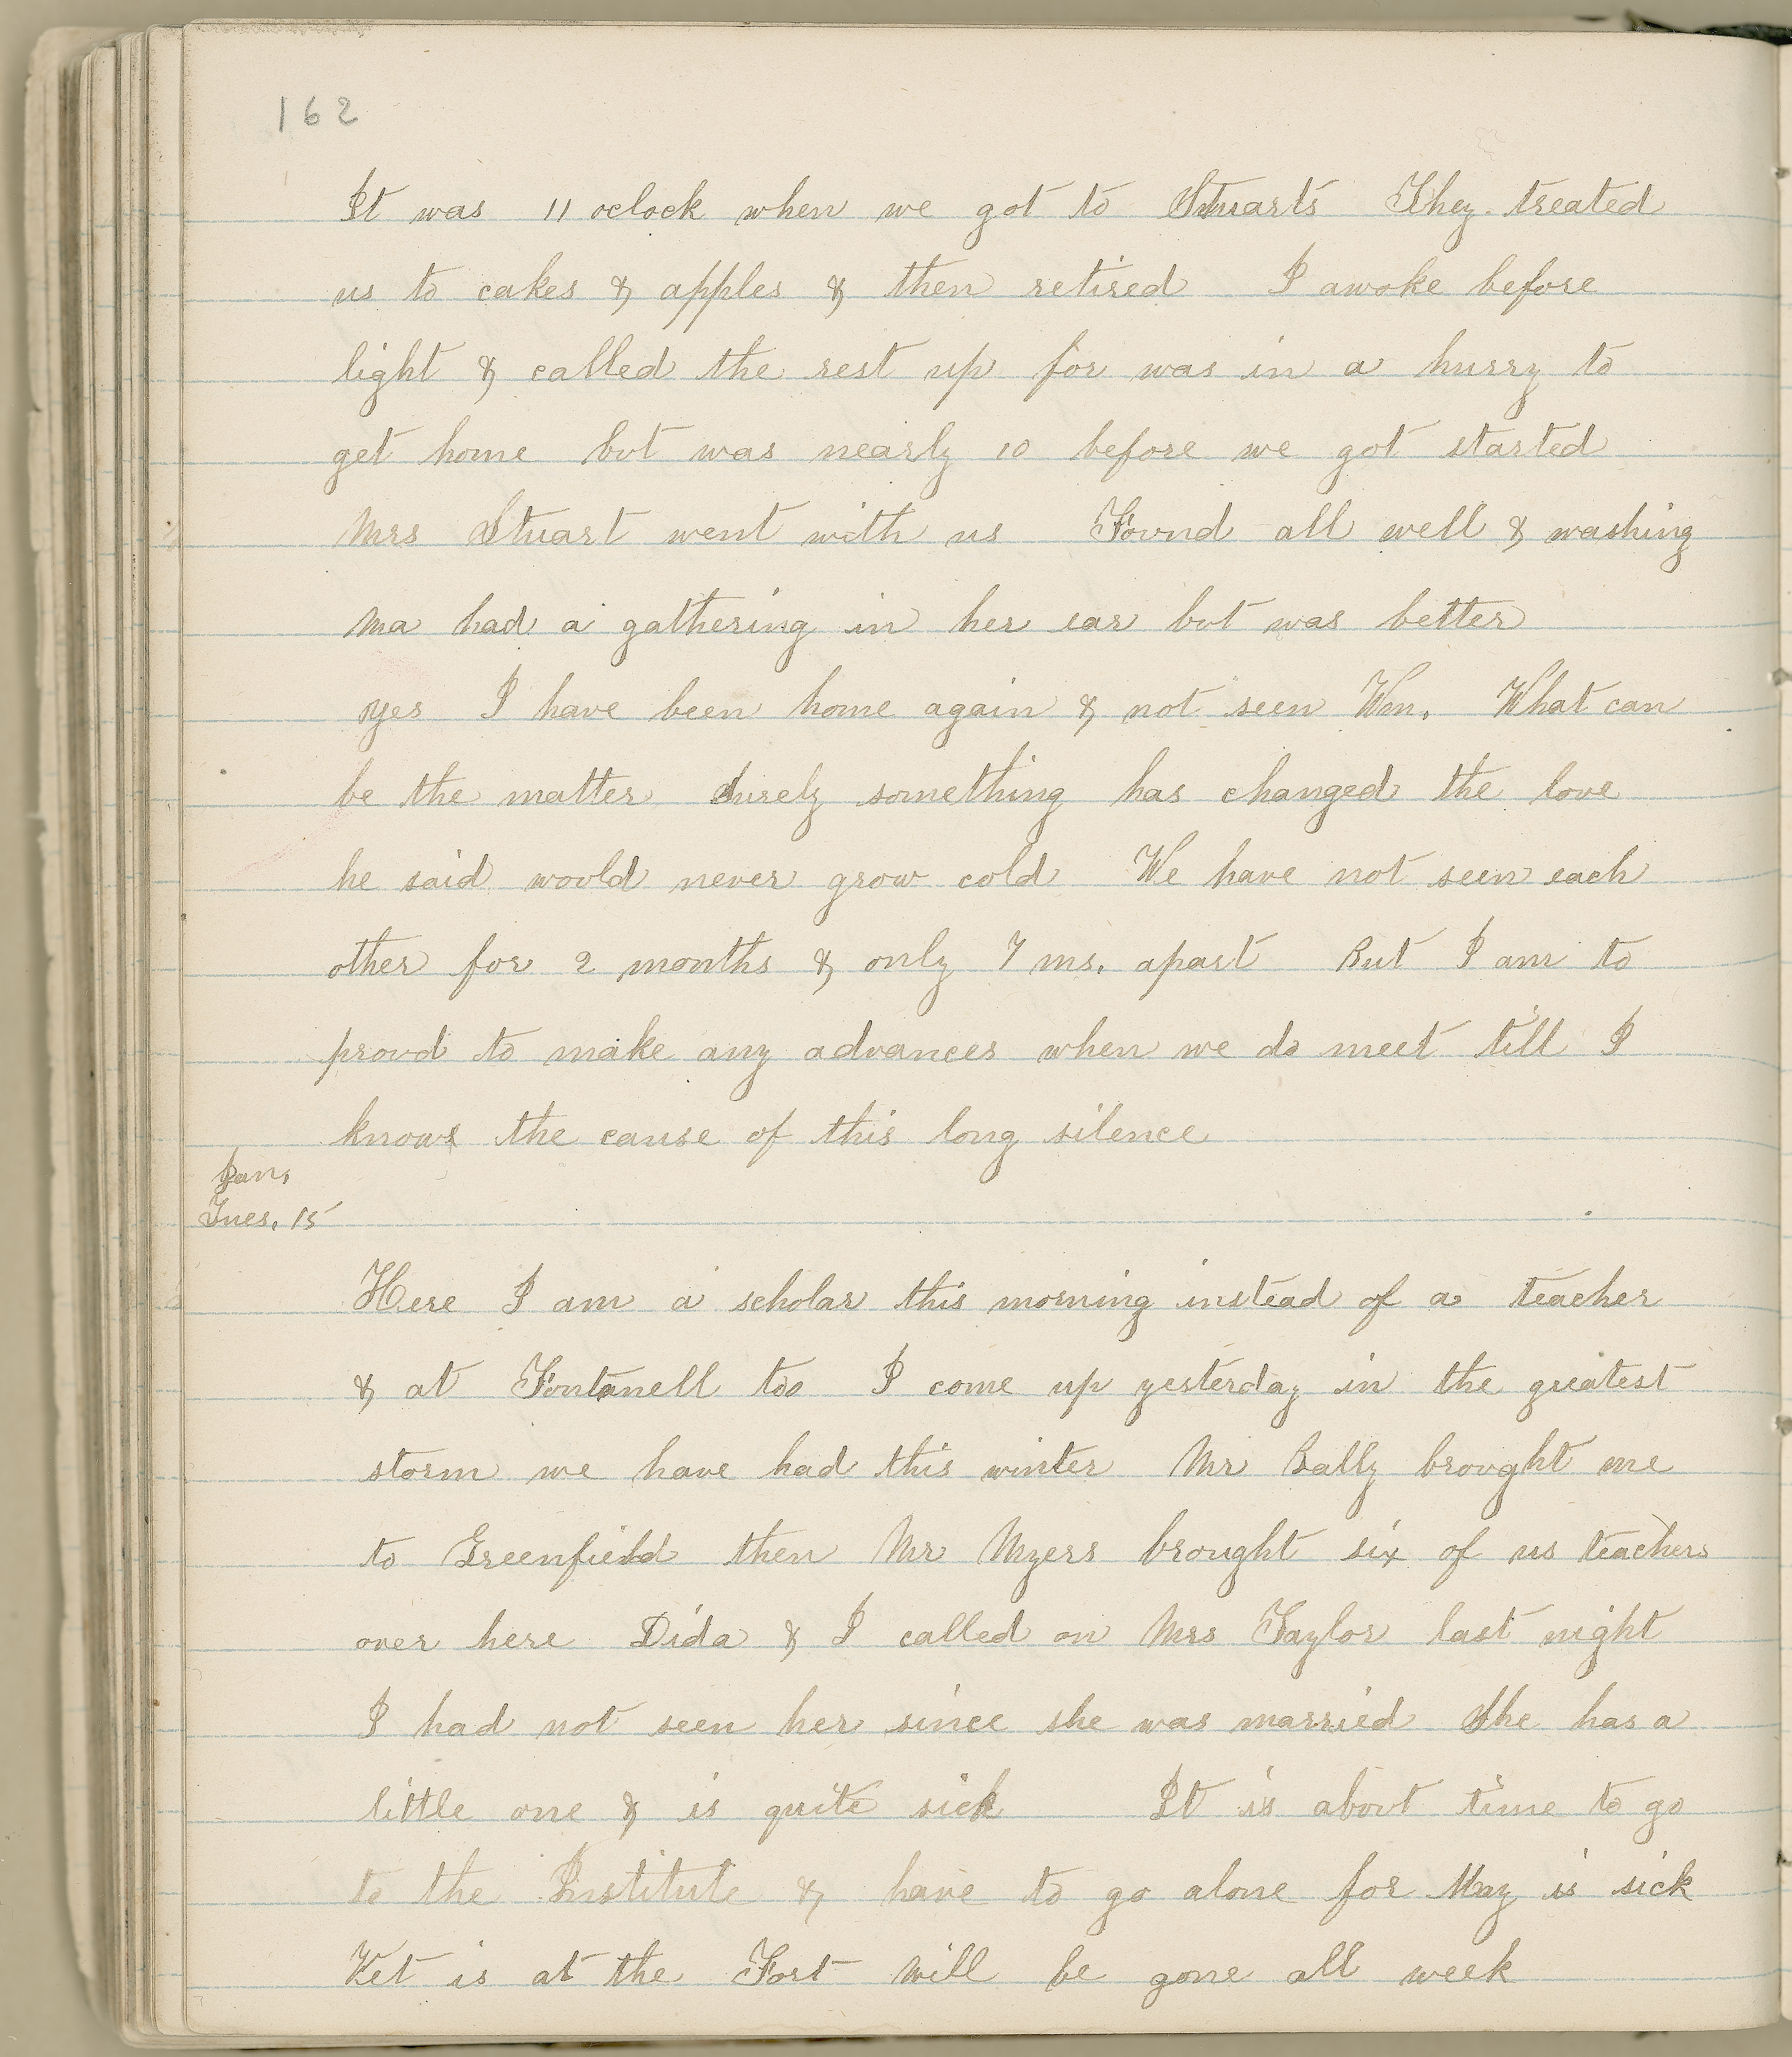 162
It was 11 oclock when we got to Stuarts They treated
us to cakes & apples & then retired I awoke before
light & called the rest up for was in a hurry to
get home but was nearly 10 before we got started
Mrs Stuart went with us Found all well & washing
Ma had a gathering in her ear but was better
yes I have been home again & not seen Wm. What can
be the matter Surely something has changed the love
he said would never grow cold We have not seen each
other for 2 months & only 7 ms. apart But I am to
proud to make any advances when we do meet till I
know the cause of this long silence
Jan.
Tues. 15
Here I am a scholar this morning instead of a teacher
& at Fontanell too I come up yesterday in the greatest
storm we have had this winter Mr Bally brought me
to Greenfield then Mr Myers brought six of us teachers
over here Dida & I called on Mrs Taylor last night
I had not seen her since she was married She has a
little one & is quite sick It is about time to go
to the Institute & have to go alone for May is sick
Ket is at the Fort Will be gone all week